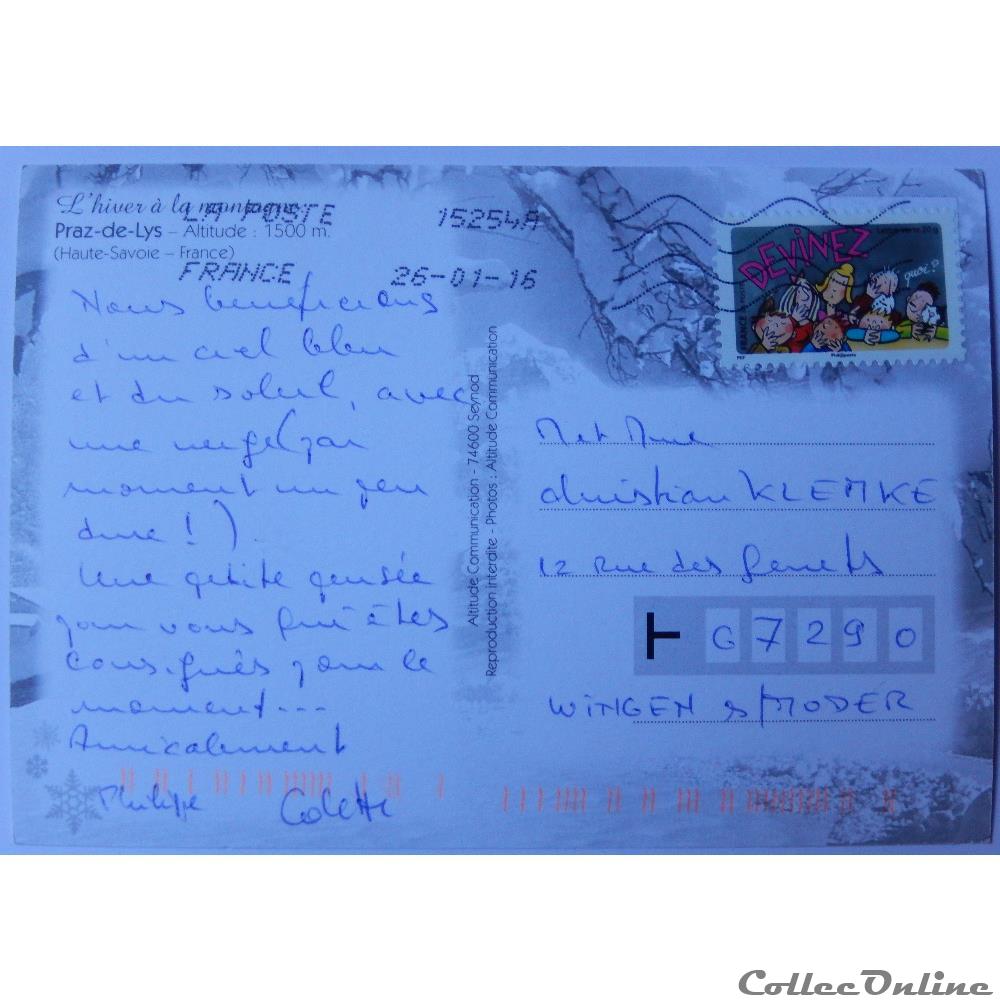 L'hiver à la montagne
Praz-de-Lys – Altitude : 1500 m.
(Haute-Savoie – France)
LA POSTE 15254A
FRANCE 26-01-16
DEVINEZ
quoi?
Lettre Verte 20 g
FRANCE
Phil@poste
Nous bénéficions
d'un ciel bleu
et du soleil, avec
une neige (par
moment un peu
dure !).
Une petite pensée
pour vous qui êtes
consignés pour le
moment...
Amicalement
Philippe Colette
Altitude Communication - 74600 Seynod
Reproduction interdite - Photos : Altitude Communication
M et Mme
Christian KLEMKE
12 Rue des Genets
67290
WINGEN s/MODER
CollecOnline